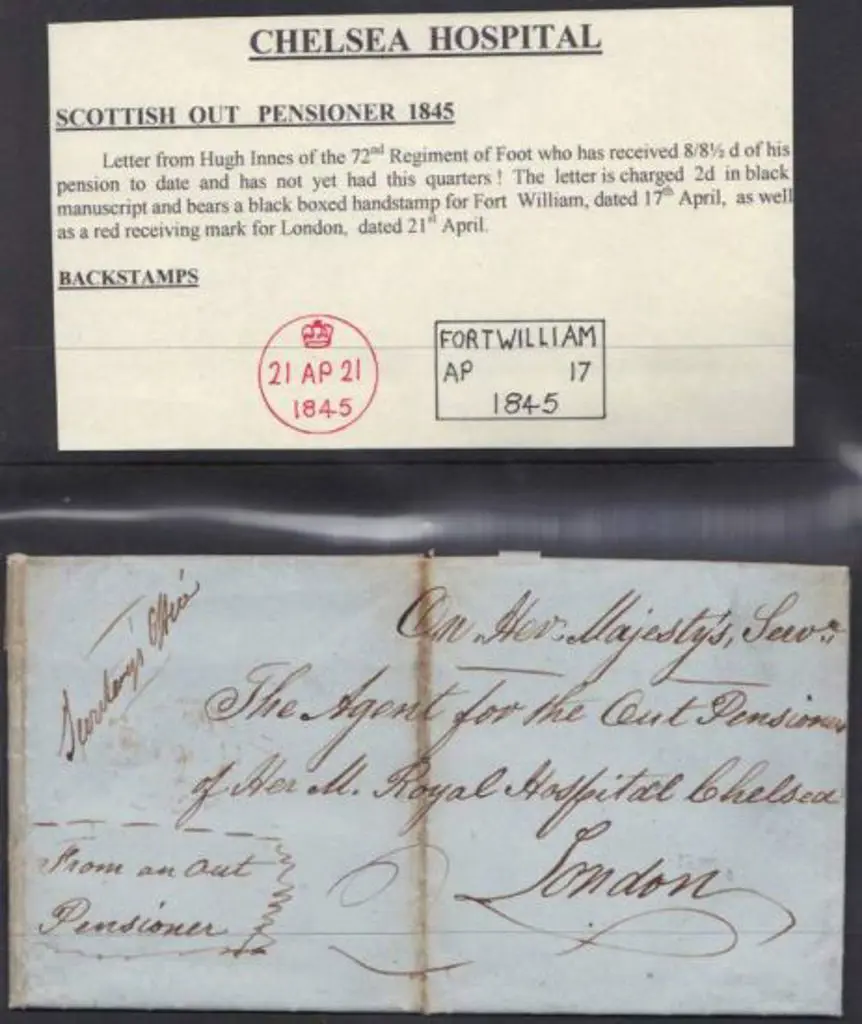 CHELSEA HOSPITAL
SCOTTISH OUT PENSIONER 1845
Letter from Hugh Innes of the 72nd Regiment of Foot who has received 8/8½ d of his
pension to date and has not yet had this quarters ! The letter is charged 2d in black
manuscript and bears a black boxed handstamp for Fort William, dated 17th April, as well
as a red receiving mark for London, dated 21st April.
BACKSTAMPS
21 AP 21
1845
FORTWILLIAM
AP 17
1845
Secretary's Office
On Her Majesty's, Serve.
The Agent for the Out Pensioners
of Her M. Royal Hospital Chelsea
London
From an Out
Pensioner